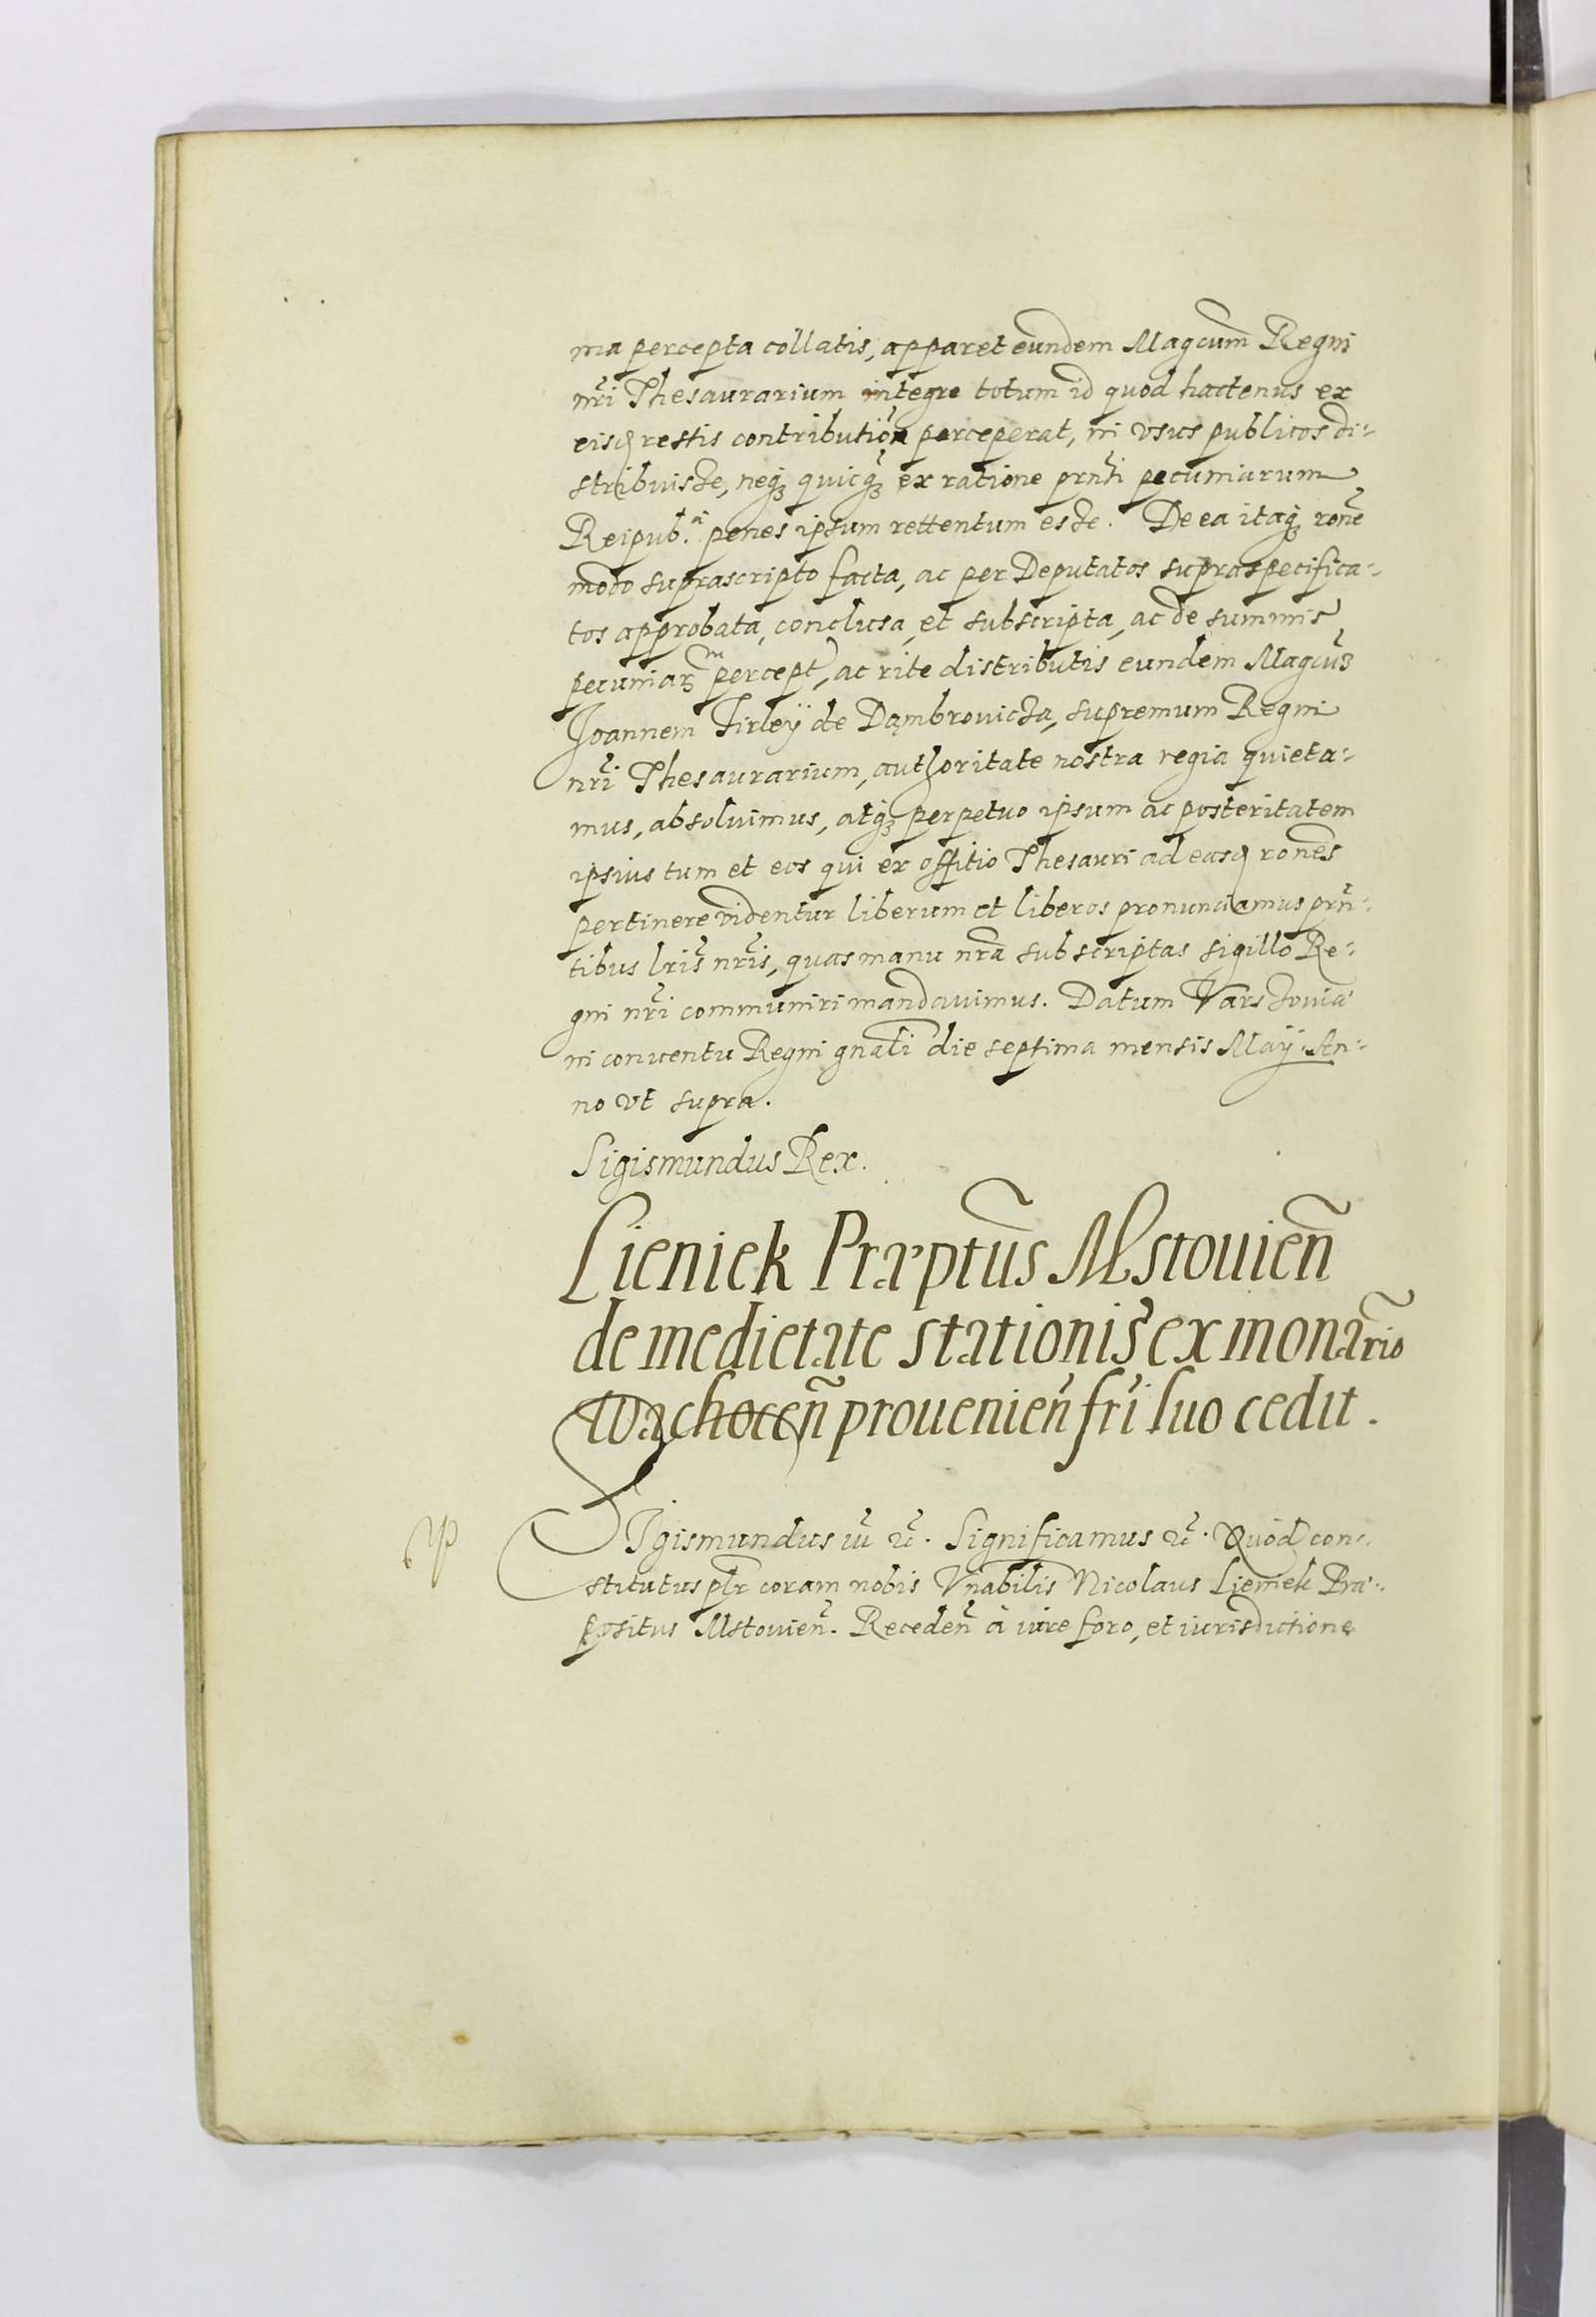 ma percepta collatis, apparet eundem Magcum̃ Regni
nr̃i Thesaurarium integre totum id quod hactenus ex
eisd restis contribution̄ perceperat, in vsus publicos di-
stribuisse, neq₃ quicq₃ ex ratione prn̄ti pecuniarum
Reipub.ᵃ penes ipsum rettentum esse. De ea itaq₃ rone᷉
modo suprascripto facta, ac per Deputatos supraspecifica-
tos approbata, conclusa, et subscripta, ac de summis
pecuniar₃ percept, ac rite distributis eundem Magcu᷉
Joannem Firleÿ de Dąmbrowicza, supremum Regni
nr̃i Thesaurarium, authoritate nostra regia quieta-
mus, absoluimus, atq₃ perpetuo ipsum ac posteritatem
ipsius tum et eos qui ex offitio Thesauri ad easd rones᷉
pertinere videntur liberum et liberos pronunciamus prn̄-
tibus lr̃is nr̃is, quas manu nr̃a subscriptas sigillo Re-
gni nr̃i communiri mandauimus. Datum Varssouiæ
in conuentu Regni gnali᷉ die septima mensis Maÿ. An-
no vt supra.
Sigismundus Rex.
Lieniek Præptus᷉ Mstouien̄
de medietate stationis ex monar᷉io
Wachocen̄ prouenien̄ fr̃i suo cedit.
SIgismundus iii᷉ ꝛc̄. Significamus ꝛc̄. Quod con-
stitutus plr̄ coram nobis Vnabilis᷉ Nicolaus Lieniek Præ-
positus Mstouien̄. Receden̄ à iure foro, et iurisdictione